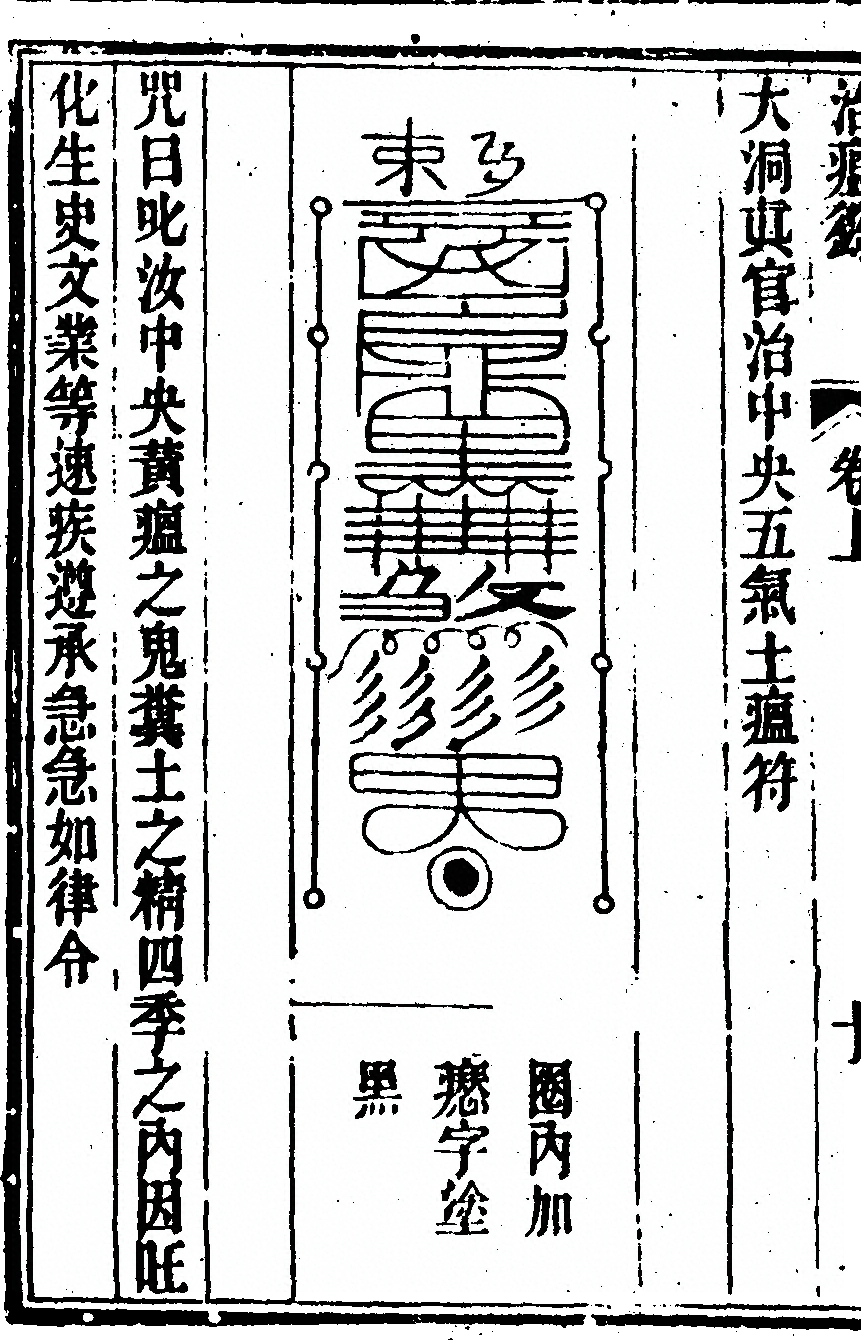 大洞眞官治中央五氣土瘟符
圈內加
字塗
黑
咒曰叱汝中央黃瘟之鬼糞土之精四季之內因旺
化生史文業等速疾遵承急急如律令
卷上
十